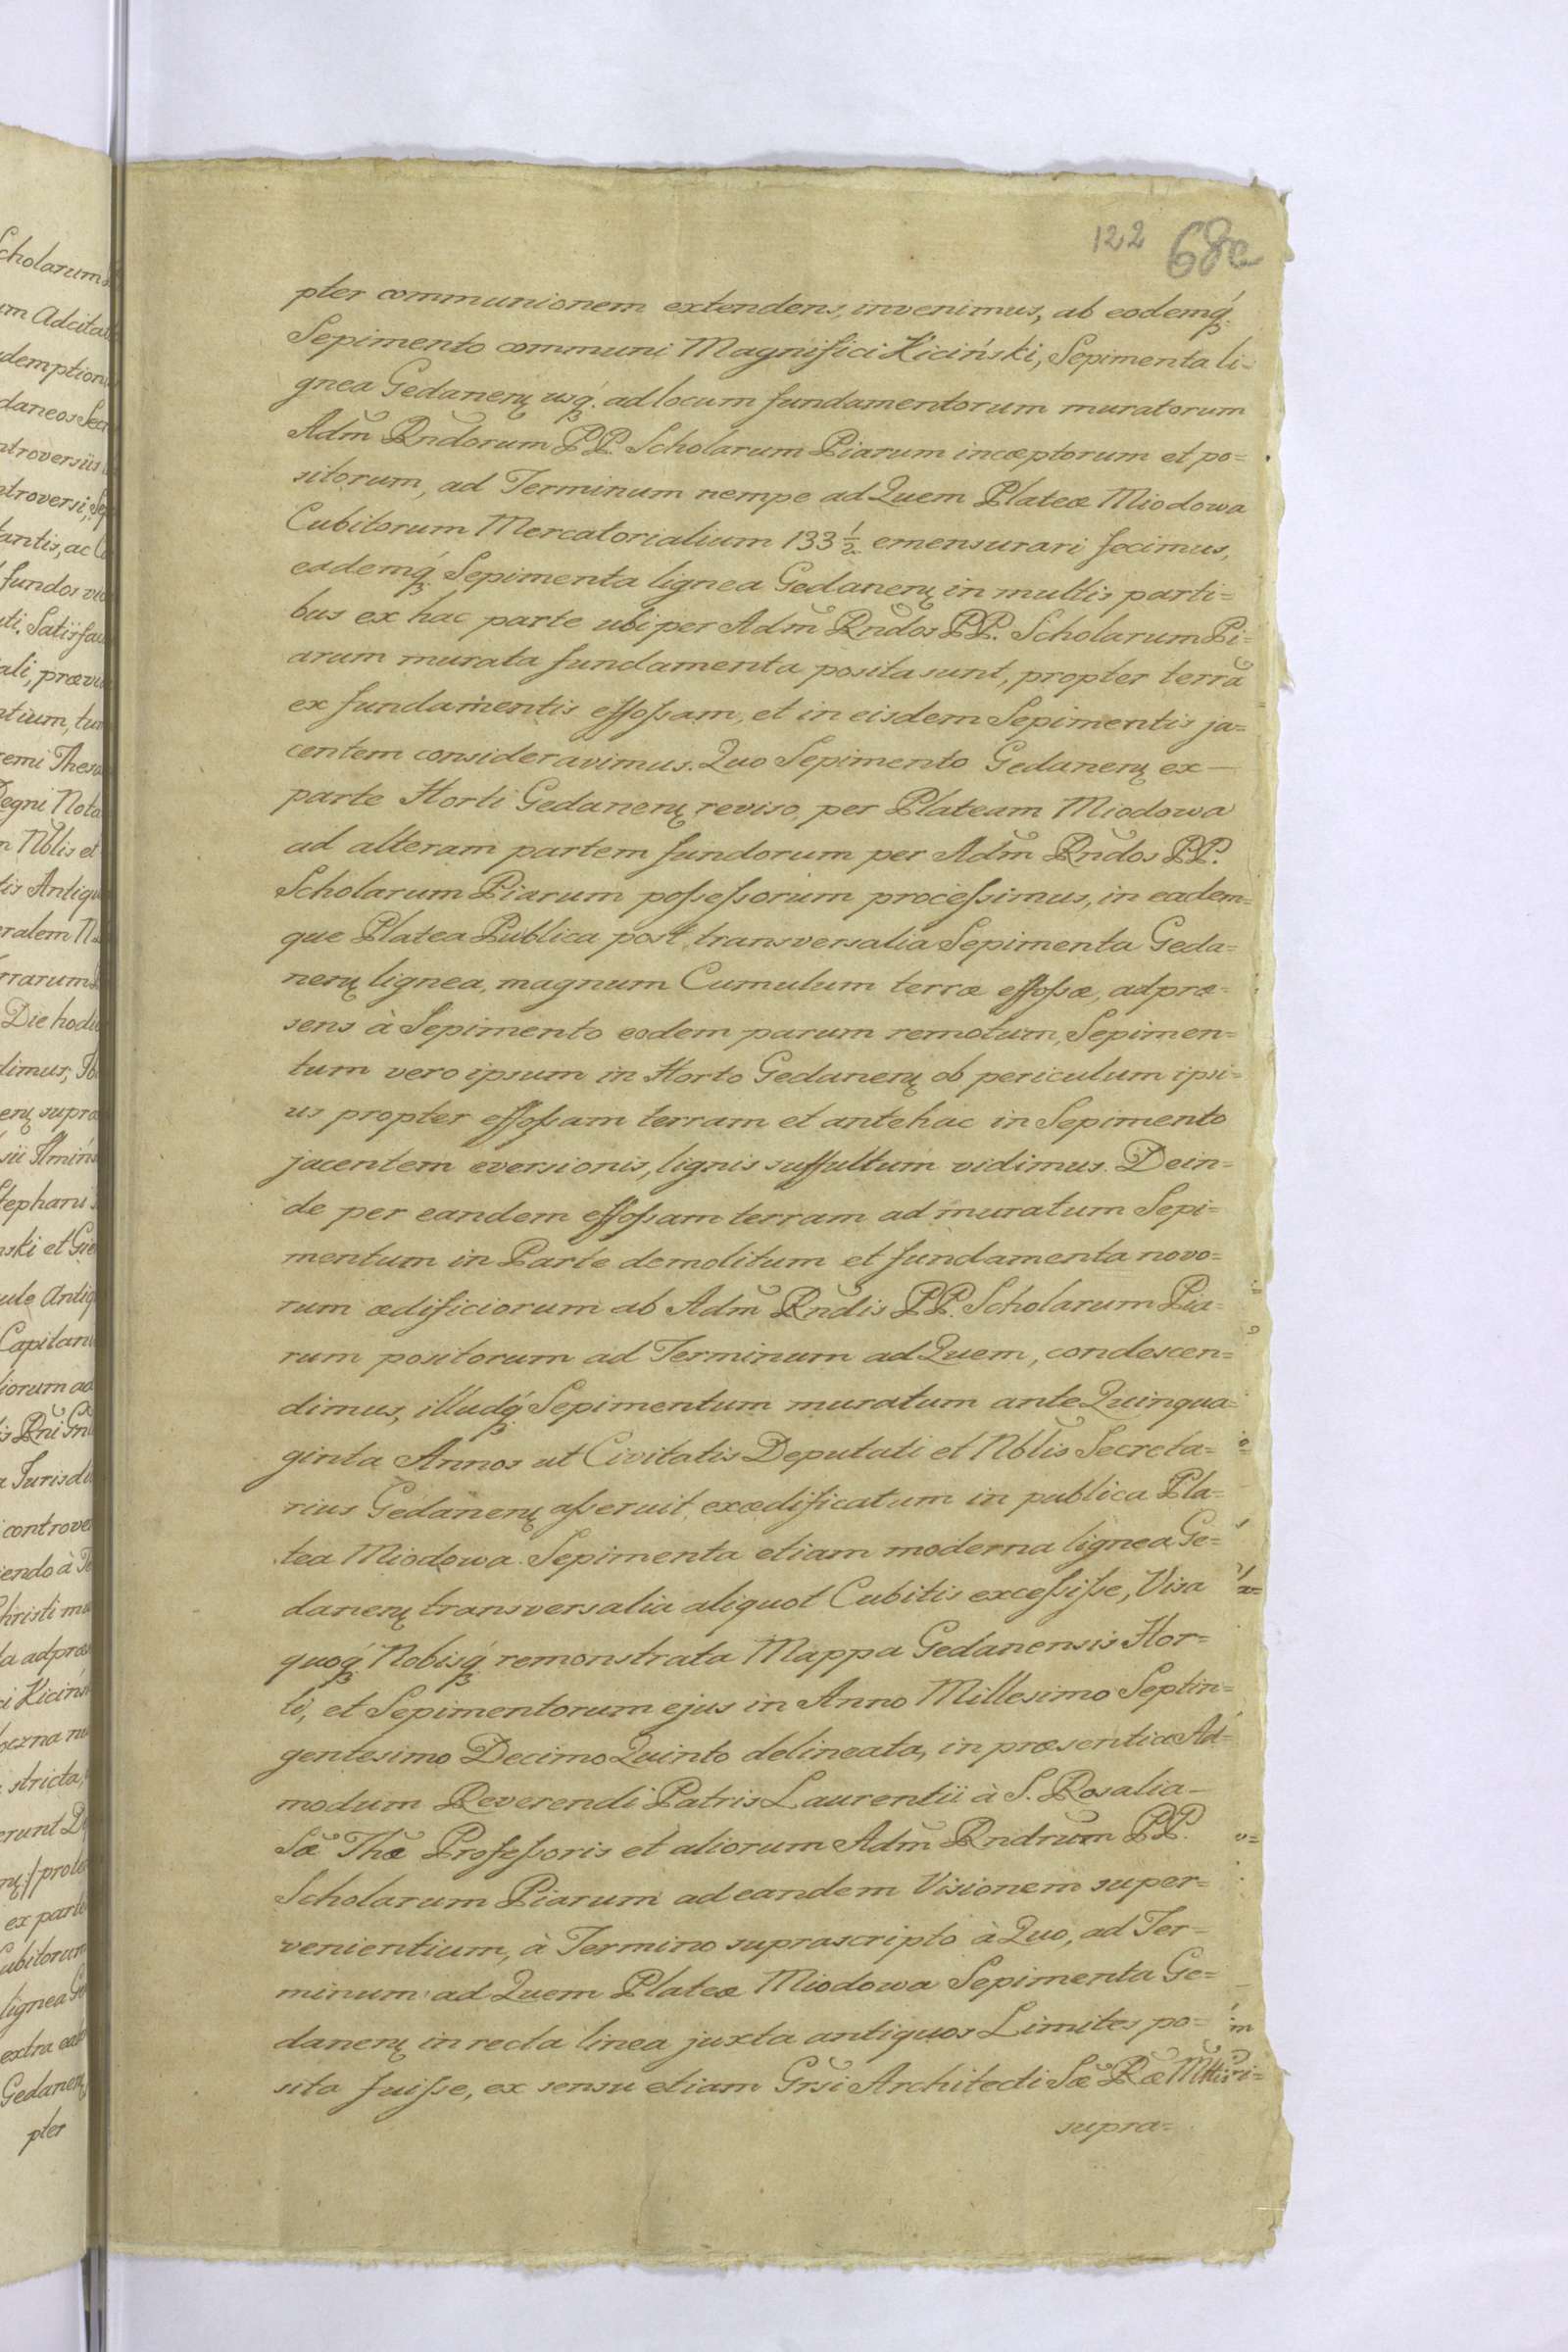 122 68c
pter communionem extendens, invenimus, ab eodemq́;
Sepimento communi Magnifici Kiciński, Sepimenta li-
gnea Gedanenȝ usq́; ad locum fundamentorum muratorum
Adm̃ Rndorum PP. Scholarum Piarum incœptorum et po=
sitorum, ad Terminum nempe ad Quem Plateæ Miodowa
Cubitorum Mercatorialium 133 1/2 emensurari fecimus,
eademq́; Sepimenta lignea Gedanenȝ in multis parti=
bus ex hac parte ubi per Adm̃ Rndos PP. Scholarum Pi=
arum murata fundamenta posita sunt, propter terrã
ex fundamentis effossam, et in eisdem Sepimentis ja=
centem consideravimus. Quo Sepimento Gedanenȝ ex—
parte Horti Gedanenȝ reviso, per Plateam Miodowa
ad alteram partem fundorum per Adm̃ Rndos PP.
Scholarum Piarum possessorum processimus, in eadem=
que Platea Publica post transversalia Sepimenta Geda=
nenȝ lignea, magnum Cumulum terræ effossæ, ad præ=
sens à Sepimento eodem parum remotum, Sepimen=
tum vero ipsum in Horto Gedanenȝ ob periculum ipsi=
us propter effossam terram et antehac in Sepimento
jacentem eversionis, lignis suffultum vidimus. Dein=
de per eandem effossam terram ad muratum Sepi=
mentum in Parte demolitum et fundamenta novo=
rum ædificiorum ab Adm̃ Rndis PP. Scholarum Pia=
rum positorum ad Terminum ad Quem, condescen=
dimus, illudq́; Sepimentum muratum ante Quinqua=
ginta Annos ut Civitatis Deputati et Nblis Secreta=
rius Gedanenȝ asseruit, exædificatum in publica Pla=
tea Miodowa. Sepimenta etiam moderna lignea Ge=
danenȝ transversalia aliquot Cubitis excessisse, Visa
quoq́; Nobisq́; remonstrata Mappa Gedanensis Hor=
ti, et Sepimentorum ejus in Anno Millesimo Septin=
gentesimo Decimo Quinto delineata, in præsentia Ad=
modum Reverendi Patris Laurentii à S. Rosalia—
Sæ Thæ Professoris et aliorum Adm̃ Rndrum PP.
Scholarum Piarum ad eandem Visionem super=
venientium, à Termino suprascripto à Quo, ad Ter=
minum ad Quem Plateæ Miodowa Sepimenta Ge=
danenȝ in recta linea juxta antiquos Limites po=
sita fuisse, ex sensu etiam Grsi Architecti Sæ Ræ Mttis
supra=